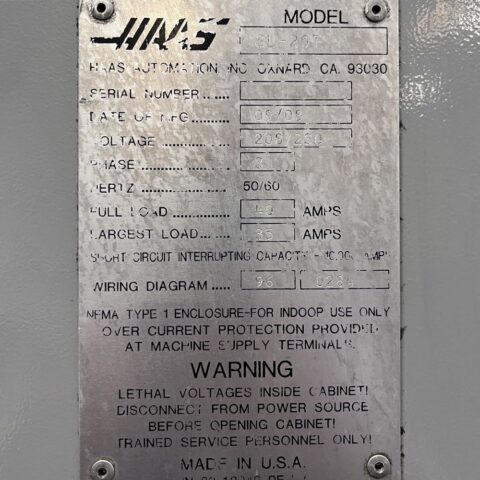 HAAS
MODEL
SL-20T
HAAS AUTOMATION, INC. OXNARD CA. 93030
SERIAL NUMBER
DATE OF MFG. 08/08
VOLTAGE 208/230
PHASE 3
HERTZ 50/60
FULL LOAD 40 AMPS
LARGEST LOAD 35 AMPS
SHORT CIRCUIT INTERRUPTING CAPACITY - 10,000 AMPS
WIRING DIAGRAM 96
NEMA TYPE 1 ENCLOSURE-FOR INDOOR USE ONLY
OVER CURRENT PROTECTION PROVIDED
AT MACHINE SUPPLY TERMINALS.
WARNING
LETHAL VOLTAGES INSIDE CABINET!
DISCONNECT FROM POWER SOURCE
BEFORE OPENING CABINET!
TRAINED SERVICE PERSONNEL ONLY!
MADE IN U.S.A.